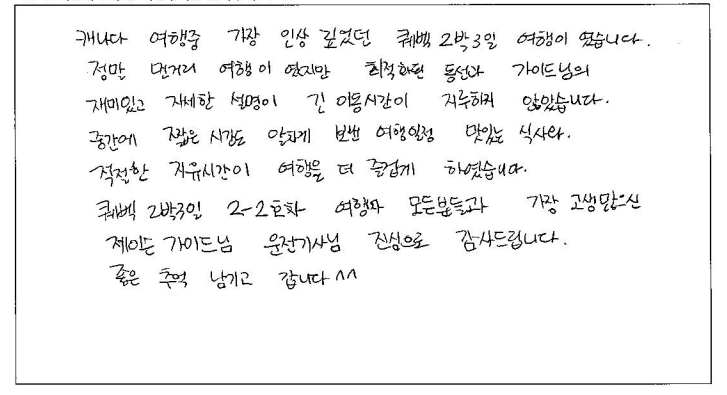 캐나다 여행중 가장 인상 깊었던 퀘벡 2박3일 여행이 였습니다.
정말 먼거리 여행이 였지만 최적화된 동선과 가이드님의
재미있고 자세한 설명이 긴 이동시간이 지루하지 않았습니다.
중간에 짧은 시간도 알차게 보낸 여행일정 맛있는 식사와.
적절한 자유시간이 여행을 더 즐겁게 하였습니다.
퀘벡 2박3일 2-2호차 여행자 모든분들과 가장 고생많으신
제이슨 가이드님 운전기사님 진심으로 감사드립니다.
좋은 추억 남기고 갑니다 ^^